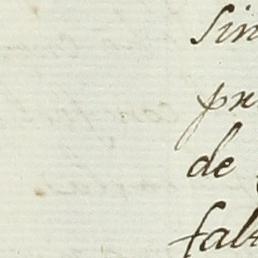 sin
pr
de
falt